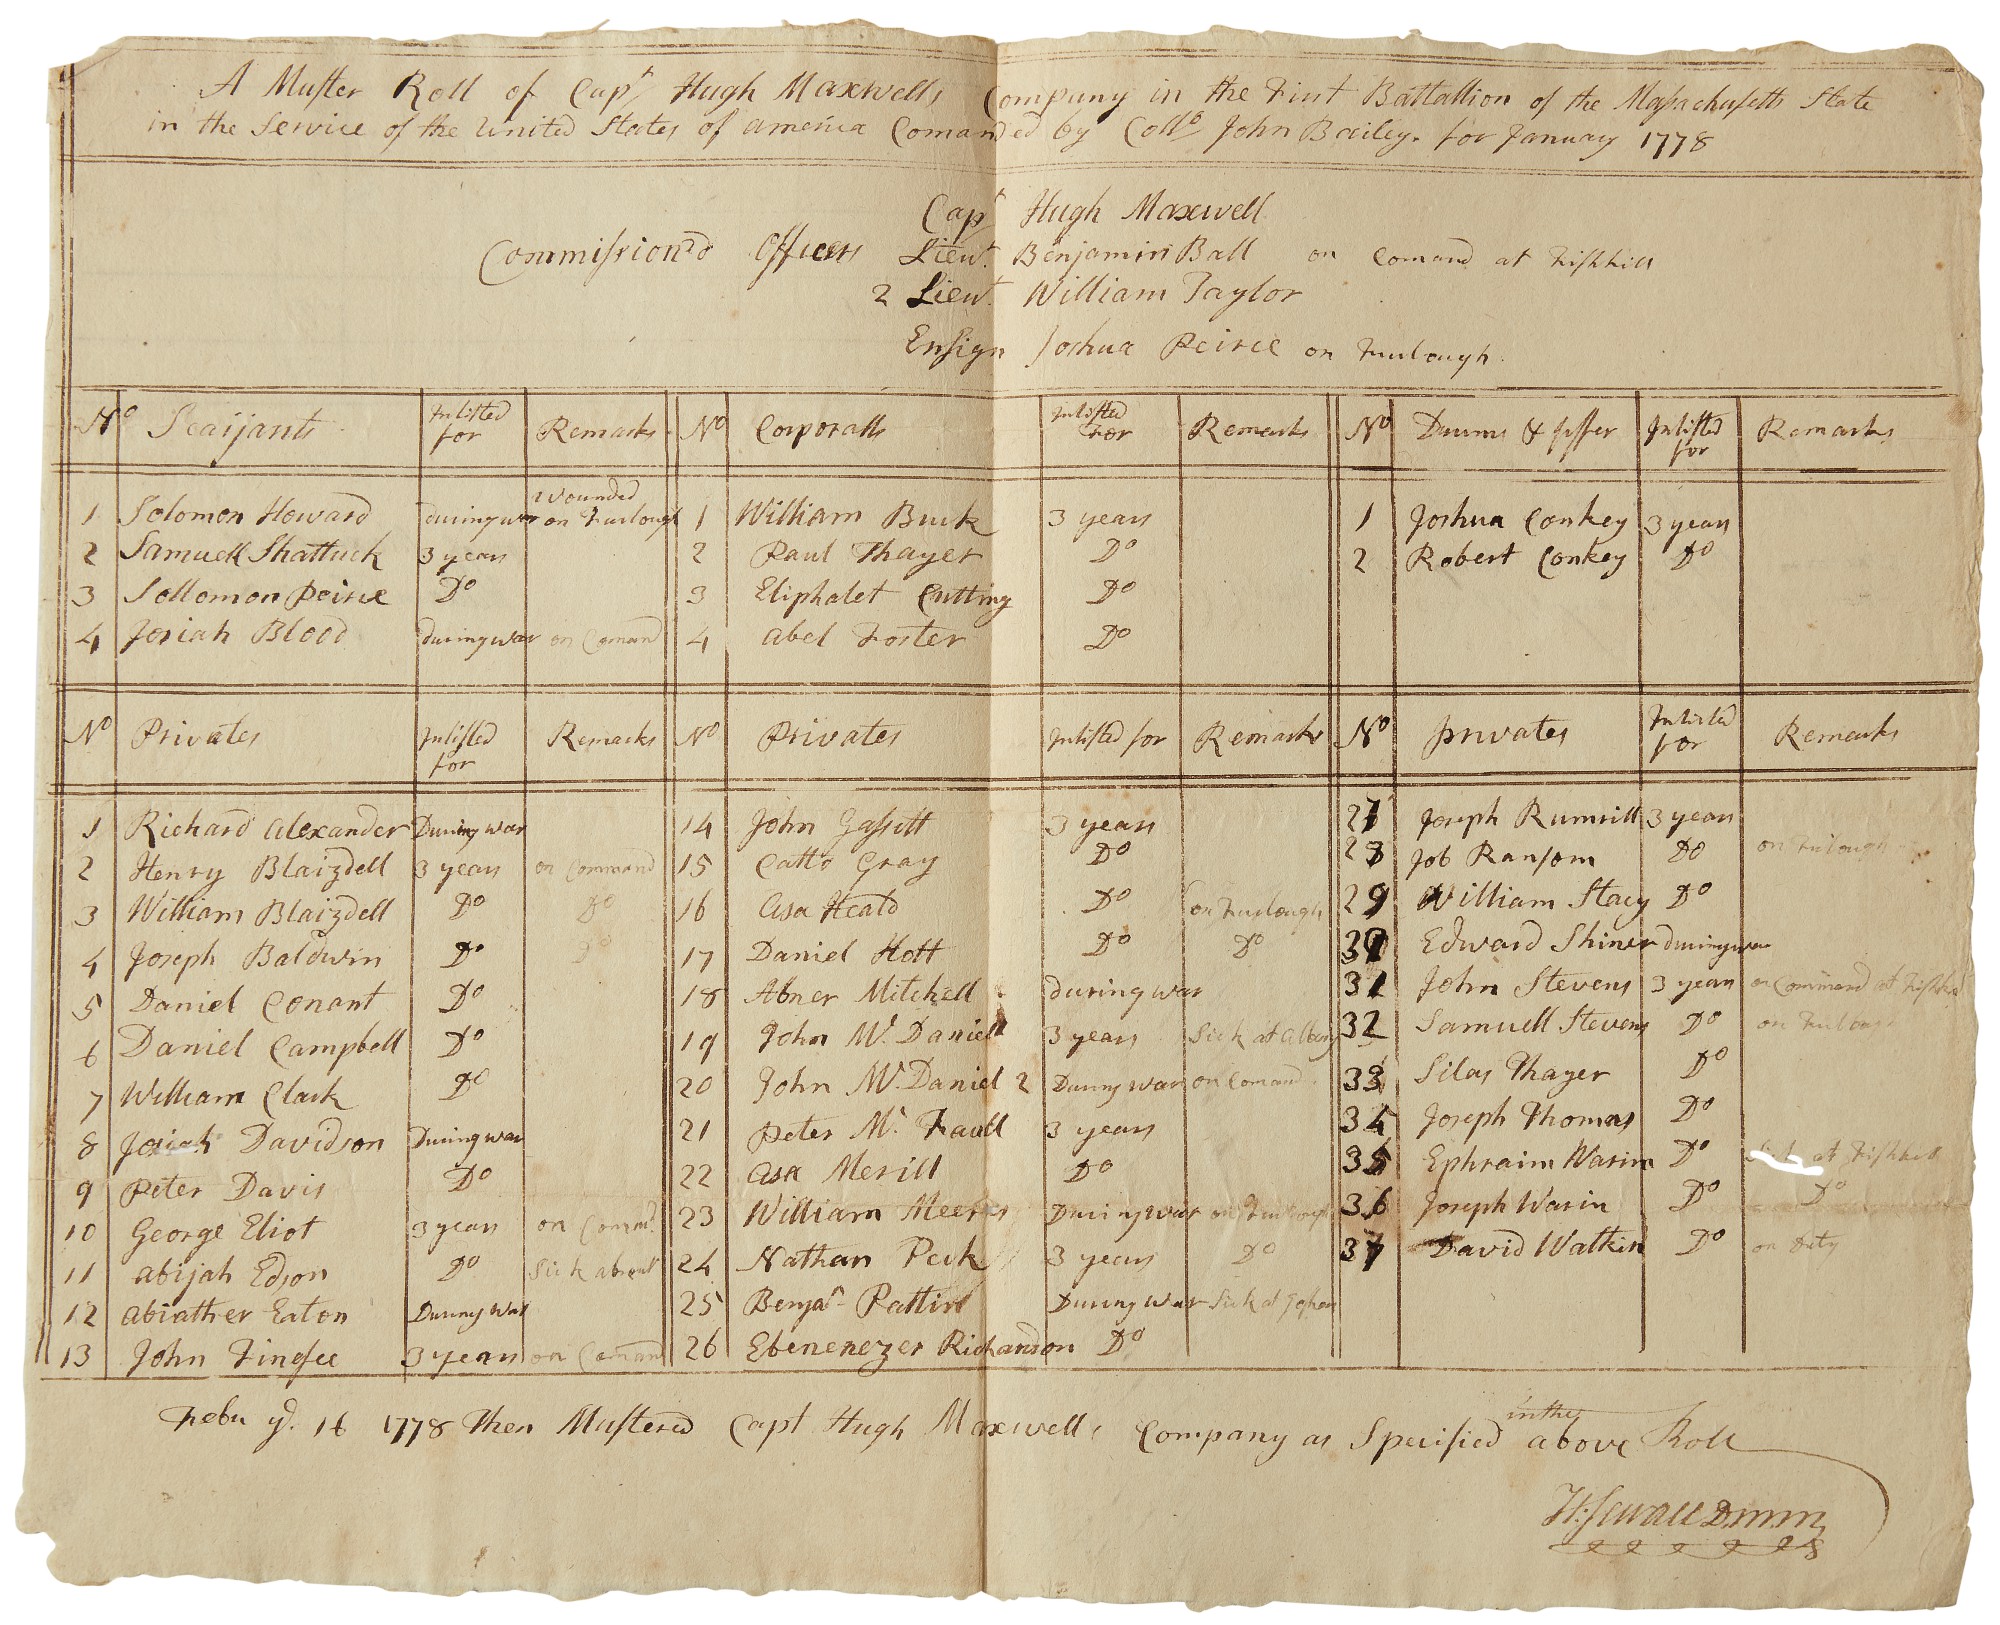 A Muster Roll of Capt Hugh Maxwells Company in the First Battallion of the Massachusetts State
in the Service of the United States of america Comanded by Collo John Bailey. for January 1778
Capt Hugh Maxwell
Commission'd Officers Lieut. Benjamin Ball on Comand at Fishkill
2 Lieut. William Taylor
Ensign Joshua Peirce on Furlough.
No Searjants Inlisted for Remarks No Corporalls Inlisted For Remarks No Drums & fiffer Inlisted for Remarks
1 Solomon Howard during war Wounded on Furlough 1 William Buck 3 years 1 Joshua Conkey 3 years
2 Samuell Shattuck 3 years 2 Paul Thayer Do 2 Robert Conkey Do
3 Sollomon Peirce Do 3 Eliphalet Cutting Do
4 Josiah Blood during war on Comand 4 abel Foster Do
No Privates Inlisted for Remarks No Privates Inlisted for Remarks No Privates Inlisted for Remarks
1 Richard alexander During war 14 John Gassett 3 years 27 Joseph Rumrill 3 years
2 Henry Blaizdell 3 years on Command 15 Catto Gray Do 28 Job Ransom Do on Furlough
3 William Blaizdell Do Do 16 Asa Heald Do on Furlough 29 William Stacy Do
4 Joseph Baldwin Do Do 17 Daniel Hott Do Do 30 Edward Shiner during war
5 Daniel Conant Do 18 Abner Mitchell during war 31 John Stevens 3 years on Command at Fishkill
6 Daniel Campbell Do 19 John Mc. Daniell 3 years Sick at Albany 32 Samuell Stevens Do on Furlough
7 William Clark Do 20 John Mc. Daniel 2 During war on Comand 33 Silas Thayer Do
8 Josiah Davidson During war 21 Peter Mc. Faull 3 years 34 Joseph Thomas Do
9 Peter Davis Do 22 Asa Merill Do 35 Ephraim Warin Do Sick at Fishkill
10 George Eliot 3 years on Comm'd 23 William Meeres During war on Furlough 36 Joseph Warin Do Do
11 abijah Edson Do Sick absent 24 Nathan Peck 3 years Do 37 David Watkin Do on Duty
12 abiather Eaton During war 25 Benjan Pattin During war Sick at
13 John Finesee 3 years on Comand 26 Ebenenezer Richardson Do
Febu yd. 16 1778 Then Mustered Capt Hugh Maxwells Company as Specified in the above Roll
H: Sewall D.M.M.